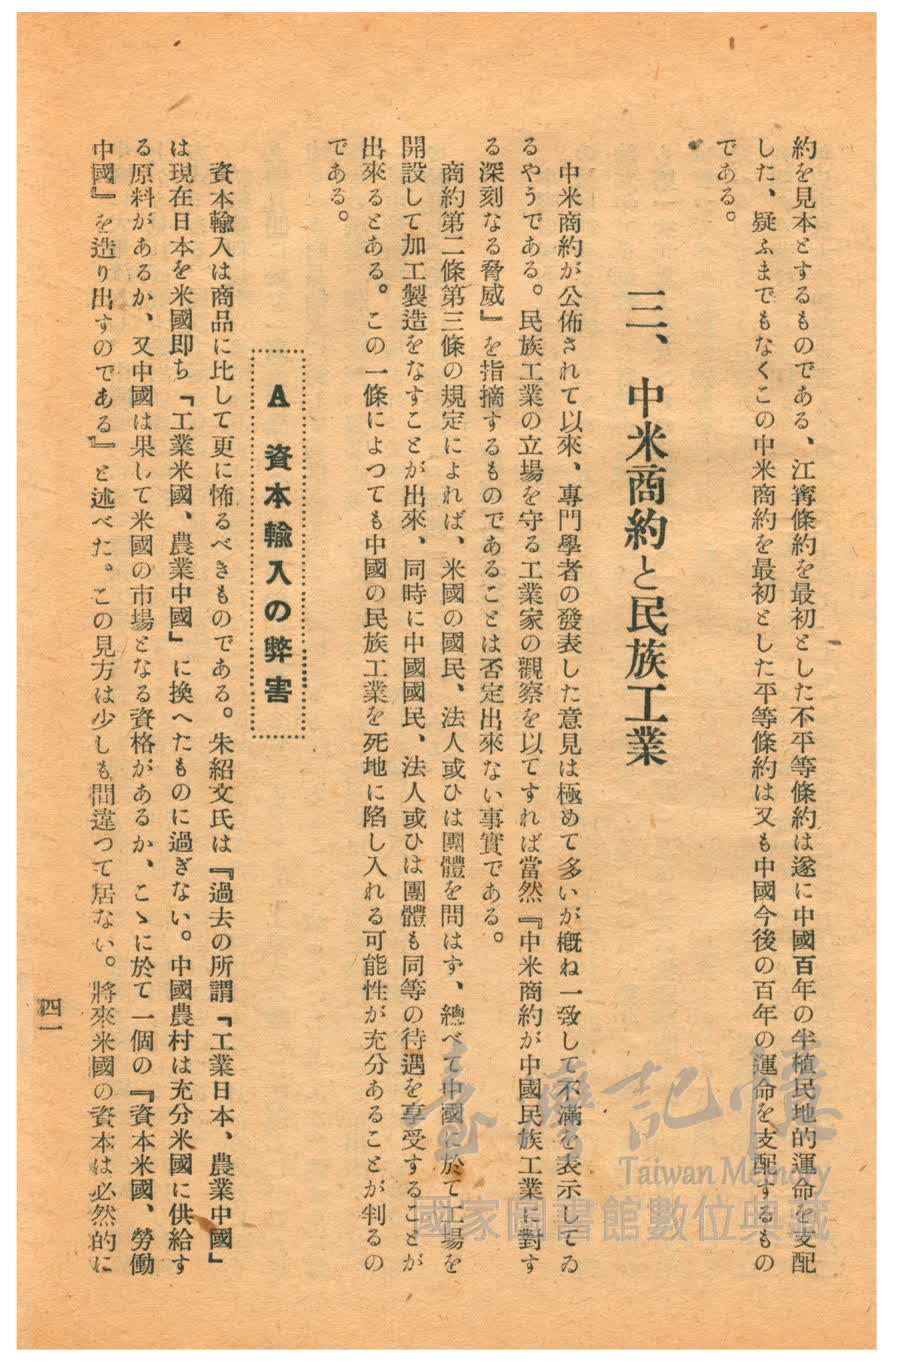 約を見本とするものである、江寗條約を最初とした不平等條約は遂に中國百年の半植民地的運命を支配
した、疑ふまでもなくこの中米商約を最初とした平等條約は又も中國今後の百年の運命を支配するもの
である。
三、中米商約と民族工業
中米商約が公佈されて以來、專門學者の發表した意見は極めて多いが槪ね一致して不滿を表示してゐ
るやうである。民族工業の立場を守る工業家の觀察を以てすれば當然『中米商約が中國民族工業に對す
る深刻なる脅威』を指摘するものであることは否定出來ない事實である。
商約第二條第三條の規定によれば、米國の國民、法人或ひは團體を問はず、總べて中國に於て工場を
開設して加工製造をなすことが出來、同時に中國國民、法人或ひは團體も同等の待遇を享受することが
出來るとある。この一條によつても中國の民族工業を死地に陷し入れる可能性が充分あることが判るの
である。
A 資本輸入の弊害
資本輸入は商品に比して更に怖るべきものである。朱紹文氏は『過去の所謂「工業日本、農業中國」
は現在日本を米國即ち「工業米國、農業中國」に換へたものに過ぎない。中國農村は充分米國に供給す
る原料があるか、又中國は果して米國の市場となる資格があるか、こゝに於て一個の『資本米國、勞働
中國』を造り出すのである』と述べた。この見方は少しも間違つて居ない。將來米國の資本は必然的に
四一
臺灣記憶
Taiwan Memory
國家圖書館數位典藏